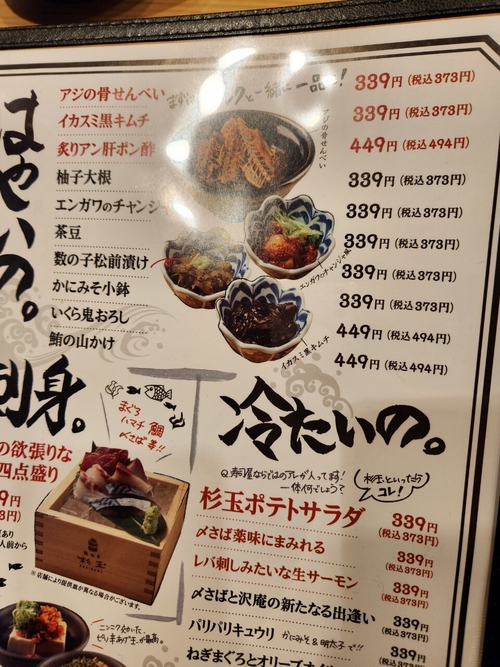 はやいの。
アジの骨せんべい 339円（税込373円）
イカスミ黒キムチ 339円（税込373円）
炙りアン肝ポン酢 449円（税込494円）
柚子大根 339円（税込373円）
エンガワのチャンジ 339円（税込373円）
茶豆 339円（税込373円）
数の子松前漬け 339円（税込373円）
かにみそ小鉢 339円（税込373円）
いくら鬼おろし 449円（税込494円）
鮪の山かけ 449円（税込494円）
まずは 一緒に一品！
アジの骨せんべい
エンガワのチャンジャ風
イカスミ黒キムチ
刺身。
まぐろ
ハマチ 鯛
〆さば 等!!
の欲張りな
四点盛り
9円
3円）
あり
人前から
杉玉
※店舗により提供皿が異なる場合がございます。
ニンニク効いた、
ピリ辛あげ玉が最高。
冷たいの。
Q.寿司屋ならではのアレが入ってます!
一体何でしょう?
杉玉といったら
コレ!
杉玉ポテトサラダ 339円
（税込373円）
〆さば薬味にまみれる 339円
（税込373円）
レバ刺しみたいな生サーモン 339円
（税込373円）
〆さばと沢庵の新たなる出逢い 339円
（税込373円）
パリパリキュウリ かにみそ&明太子で!! 339円
（税込373円）
ねぎまぐろとオリーブ 339円